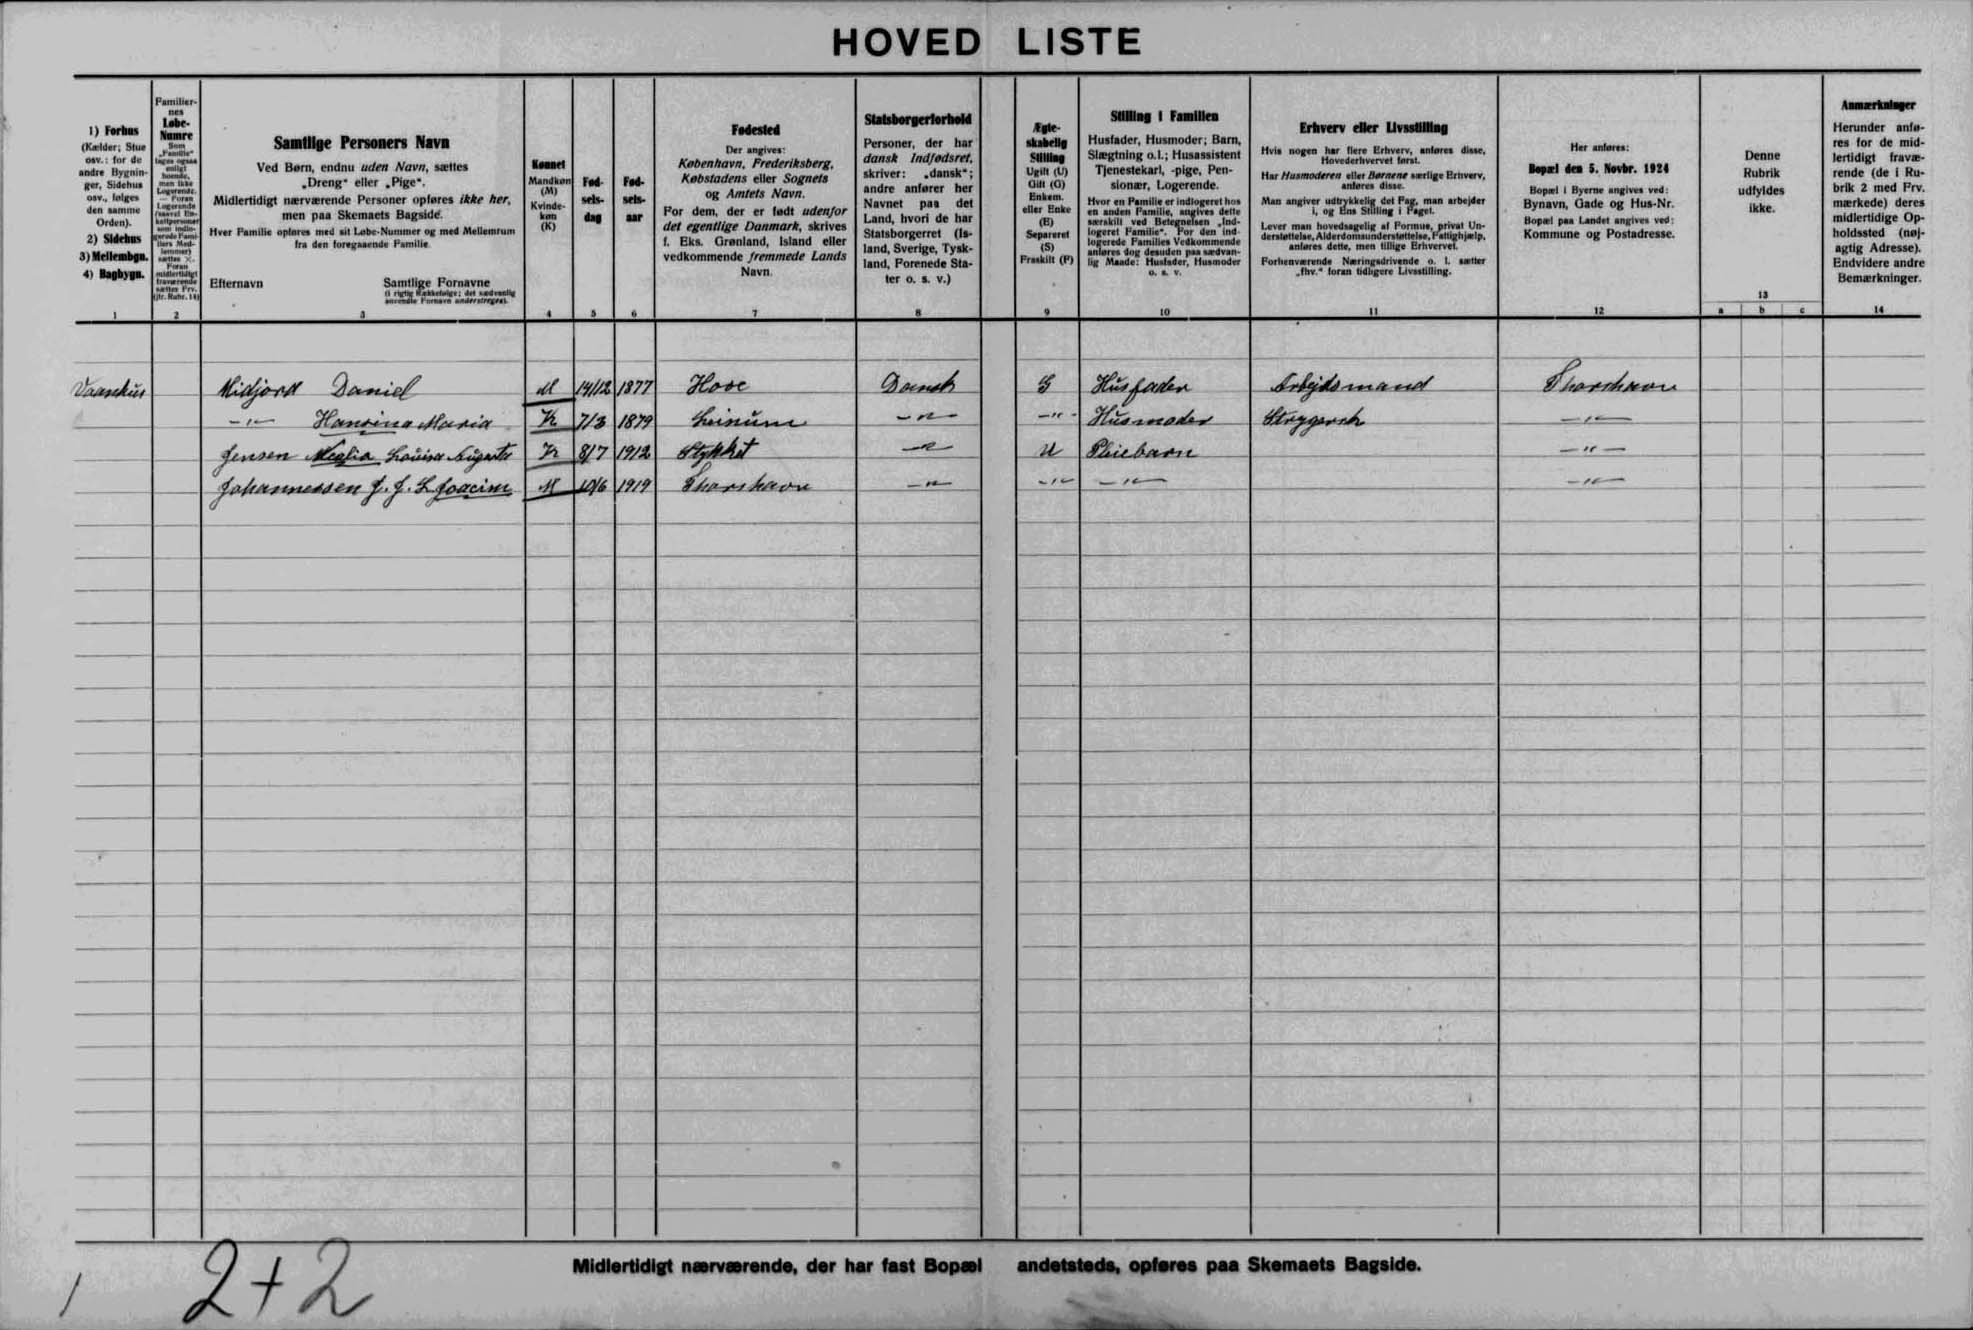 HOVED LISTE
1) Forhus
(Kælder; Stue
osv.: for de
andre Bygnin-
ger, Sidehus
osv., følges
den samme
Orden).
2) Sidehus
3) Mellembgn.
4) Bagbygn.
1
Familier-
nes
Løbe-
Numre
Som
„Familie“
tages ogsaa
enligt
boende,
men ikke
Logerende.
— Foran
Logerende
(saavel En-
keltpersoner
som indlo-
gerede Fami-
liers Med-
lemmer)
sættes ×.
Foran
midlertidigt
fraværende
sættes Frv.
(jfr. Rubr. 14)
2
Samtlige Personers Navn
Ved Børn, endnu uden Navn, sættes
„Dreng“ eller „Pige“.
Midlertidigt nærværende Personer opføres ikke her,
men paa Skemaets Bagside.
Hver Familie opføres med sit Løbe-Nummer og med Mellemrum
fra den foregaaende Familie.
Efternavn Samtlige Fornavne
(i rigtig Rækkefølge; det sædvanlig
anvendte Fornavn understreges).
3
Kønnet
Mandkøn
(M)
Kvinde-
køn
(K)
4
Fød-
sels-
dag
5
Fød-
sels-
aar
6
Fødested
Der angives:
København, Frederiksberg,
Købstadens eller Sognets
og Amtets Navn.
For dem, der er født udenfor
det egentlige Danmark, skrives
f. Eks. Grønland, Island eller
vedkommende fremmede Lands
Navn.
7
Statsborgerforhold
Personer, der har
dansk Indfødsret,
skriver: „dansk“;
andre anfører her
Navnet paa det
Land, hvori de har
Statsborgerret (Is-
land, Sverige, Tysk-
land, Forenede Sta-
ter o. s. v.)
8
Ægte-
skabelig
Stilling
Ugift (U)
Gift (G)
Enkem.
eller Enke
(E)
Separeret
(S)
Fraskilt (F)
9
Stilling i Familien
Husfader, Husmoder; Barn,
Slægtning o.l.; Husassistent
Tjenestekarl, -pige, Pen-
sionær, Logerende.
Hvor en Familie er indlogeret hos
en anden Familie, angives dette
særskilt ved Betegnelsen „Ind-
logeret Familie“. For den ind-
logerede Families Vedkommende
anføres dog desuden paa sædvan-
lig Maade: Husfader, Husmoder
o. s. v.
10
Erhverv eller Livsstilling
Hvis nogen har flere Erhverv, anføres disse,
Hovederhvervet først.
Har Husmoderen eller Børnene særlige Erhverv,
anføres disse.
Man angiver udtrykkelig det Fag, man arbejder
i, og Ens Stilling i Faget.
Lever man hovedsagelig af Formue, privat Un-
derstøttelse, Alderdomsunderstøttelse, Fattighjælp,
anføres dette, men tillige Erhvervet.
Forhenværende Næringsdrivende o. l. sætter
„fhv.“ foran tidligere Livsstilling.
11
Her anføres:
Bopæl den 5. Novbr. 1924
Bopæl i Byerne angives ved:
Bynavn, Gade og Hus-Nr.
Bopæl paa Landet angives ved:
Kommune og Postadresse.
12
Denne
Rubrik
udfyldes
ikke.
13
a b c
Anmærkninger
Herunder anfø-
res for de mid-
lertidigt fravæ-
rende (de i Ru-
brik 2 med Frv.
mærkede) deres
midlertidige Op-
holdssted (nøj-
agtig Adresse).
Endvidere andre
Bemærkninger.
14
Vaanhus Midjord Daniel M 14/12 1877 Hove Dansk G Husfader Arbejdsmand Thorshavn
-"- Hansina Maria K 7/3 1879 Leinum -"- -"- Husmoder Strygersk -"-
Jensen Louisa Augusta K 8/7 1912 Stykket -"- U Pleiebarn -"-
Johannessen J. J. L. Joacim M 10/6 1919 Thorshavn -"- -"- -"- -"-
Midlertidigt nærværende, der har fast Bopæl andetsteds, opføres paa Skemaets Bagside.
1 2+2